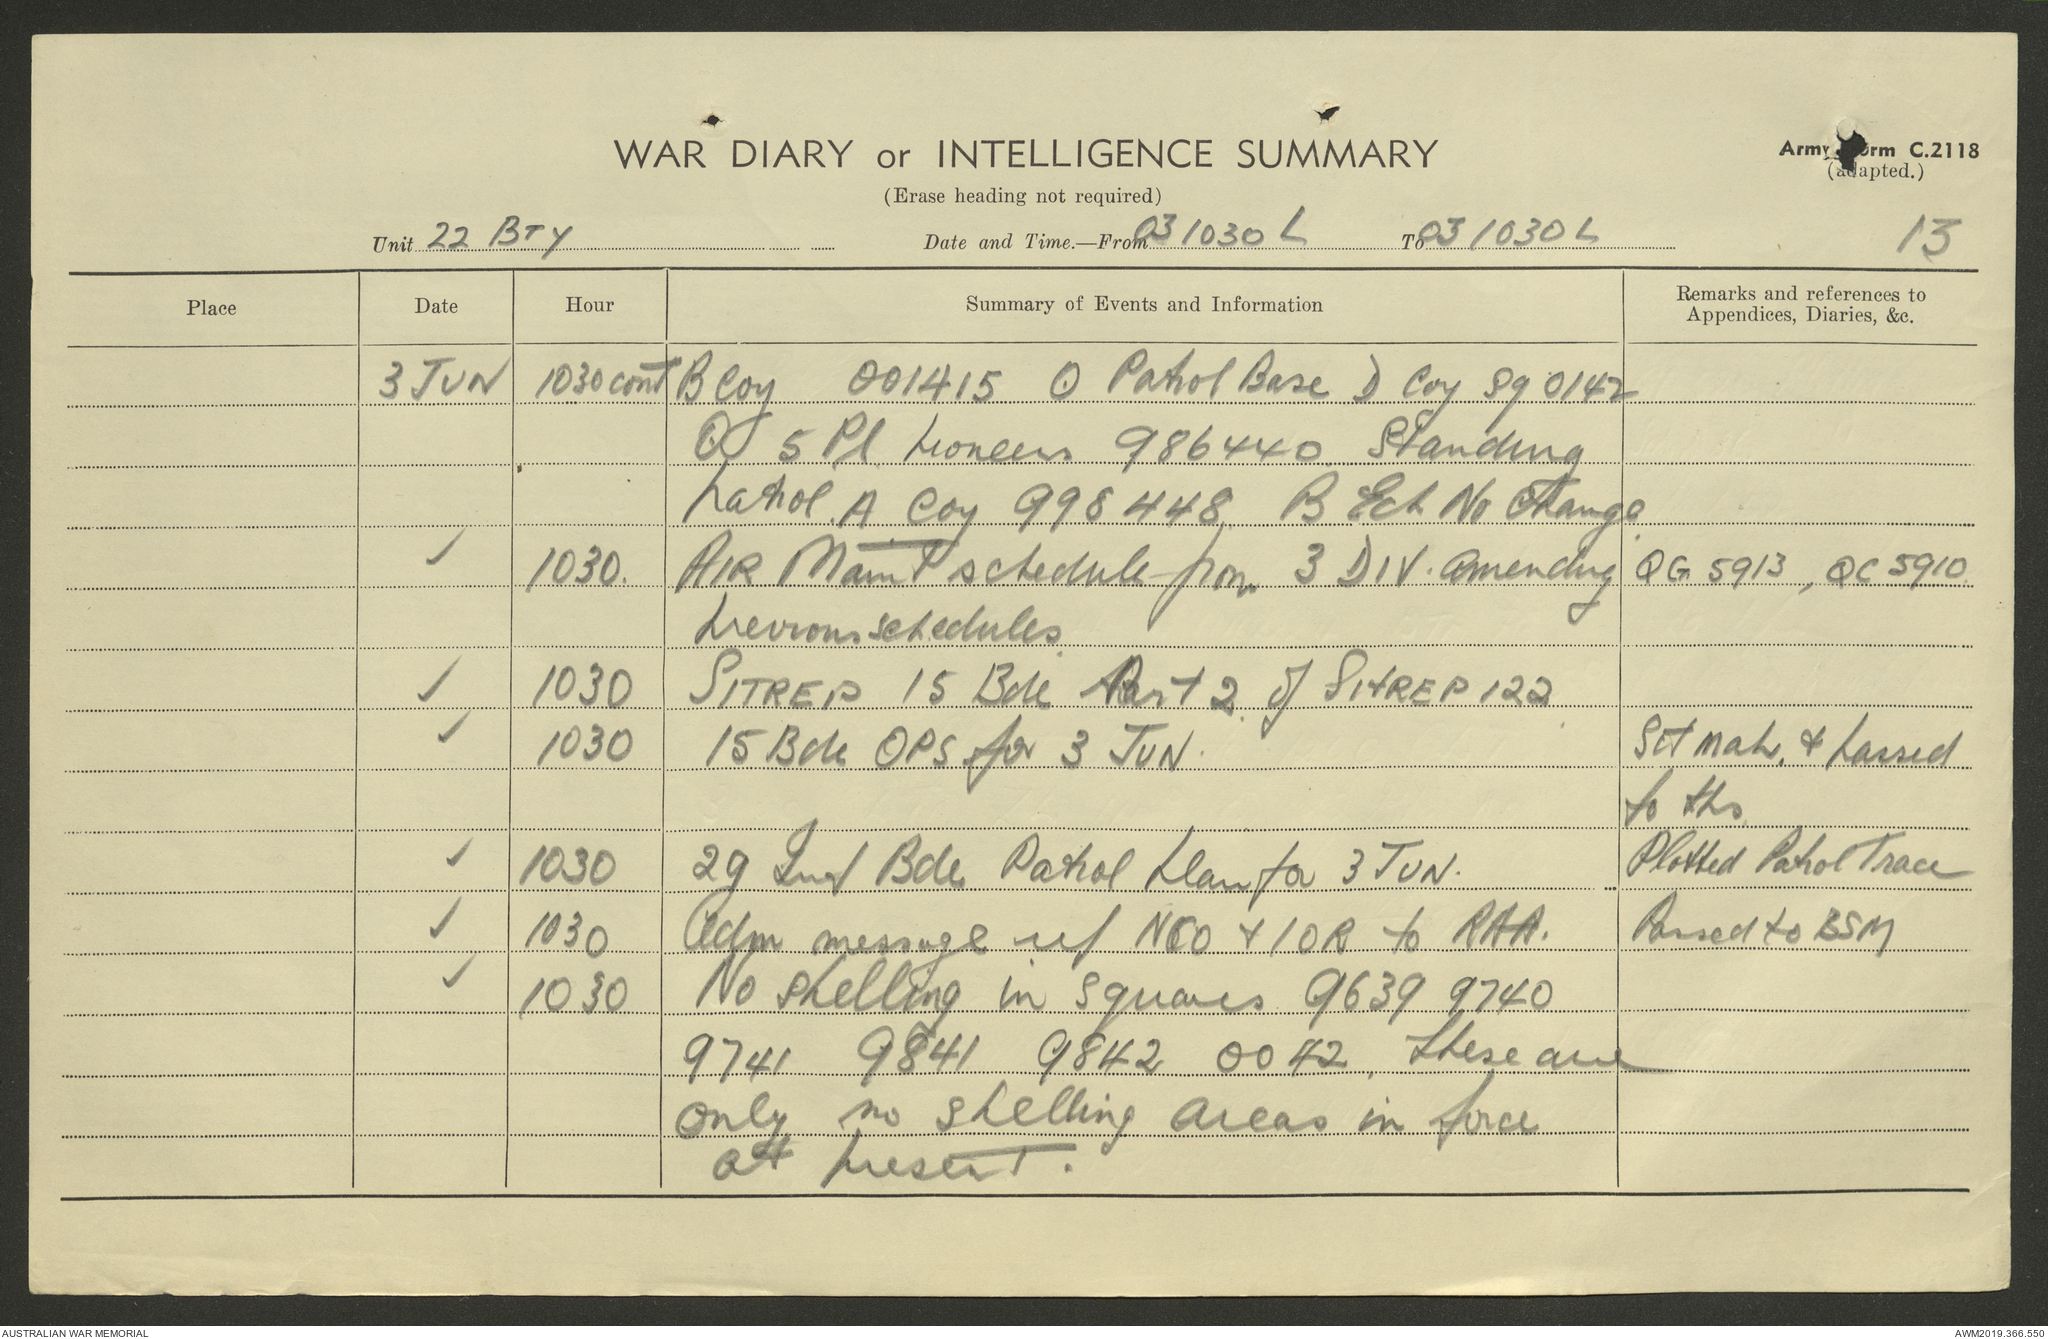 WAR DIARY or INTELLIGENCE SUMMARY
Army Form C.2118
(adapted.)
(Erase heading not required)
Unit 22 BTY Date and Time.—From 031030L To 031030L 13
Place Date Hour Summary of Events and Information Remarks and references to Appendices, Diaries, &c.
3 JUN 1030 cont B Coy 001415 O Patrol Base D Coy Sq 0142
O 5 Pl. Pioneers 986440. Standing
Patrol A Coy 998448. B Ech No Change.
✓ 1030. AIR Maint schedule from 3 DIV. amending QG 5913, QC 5910.
previous schedules.
✓ 1030 SITREP 15 Bde Part 2 of SITREP 122
✓ 1030 15 Bde OPS for 3 JUN. Sit map. & passed
to
✓ 1030 29 Inf Bde Patrol Plan for 3 JUN. Plotted Patrol Trace
✓ 1030 Adm message ref NCO + 1 OR to RAA. Passed to BSM
✓ 1030 No shelling in squares 9639 9740
9741 9841 9842 0042. these are
only no shelling areas in force
at present.
AUSTRALIAN WAR MEMORIAL AWM2019.366.550